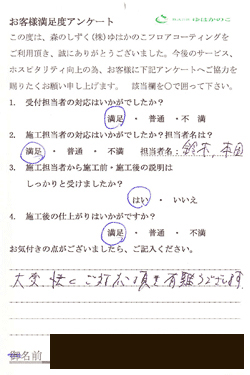 お客様満足度アンケート
この度は、森のしずく(株)ゆはかのこフロアコーティングを
ご利用頂き、誠にありがとうございました。今後のサービス、
ホスピタリティ向上の為、お客様に下記アンケートへご協力を
賜りたくお願い申し上げます。 該当欄を○で囲って下さい。
1. 受付担当者の対応はいかがでしたか?
満足 ・ 普通 ・不 満
2. 施工担当者の対応はいかがでしたか?担当者名は?
満足 ・ 普通 ・ 不満 担当者名:鈴木、本田
3. 施工担当者から施工前・施工後の説明は
しっかりと受けましたか?
はい ・ いいえ
4. 施工後の仕上がりはいかがですか?
満足 ・ 普通 ・ 不満
お気付きの点がございましたら、ご記入ください。
大変
御名前